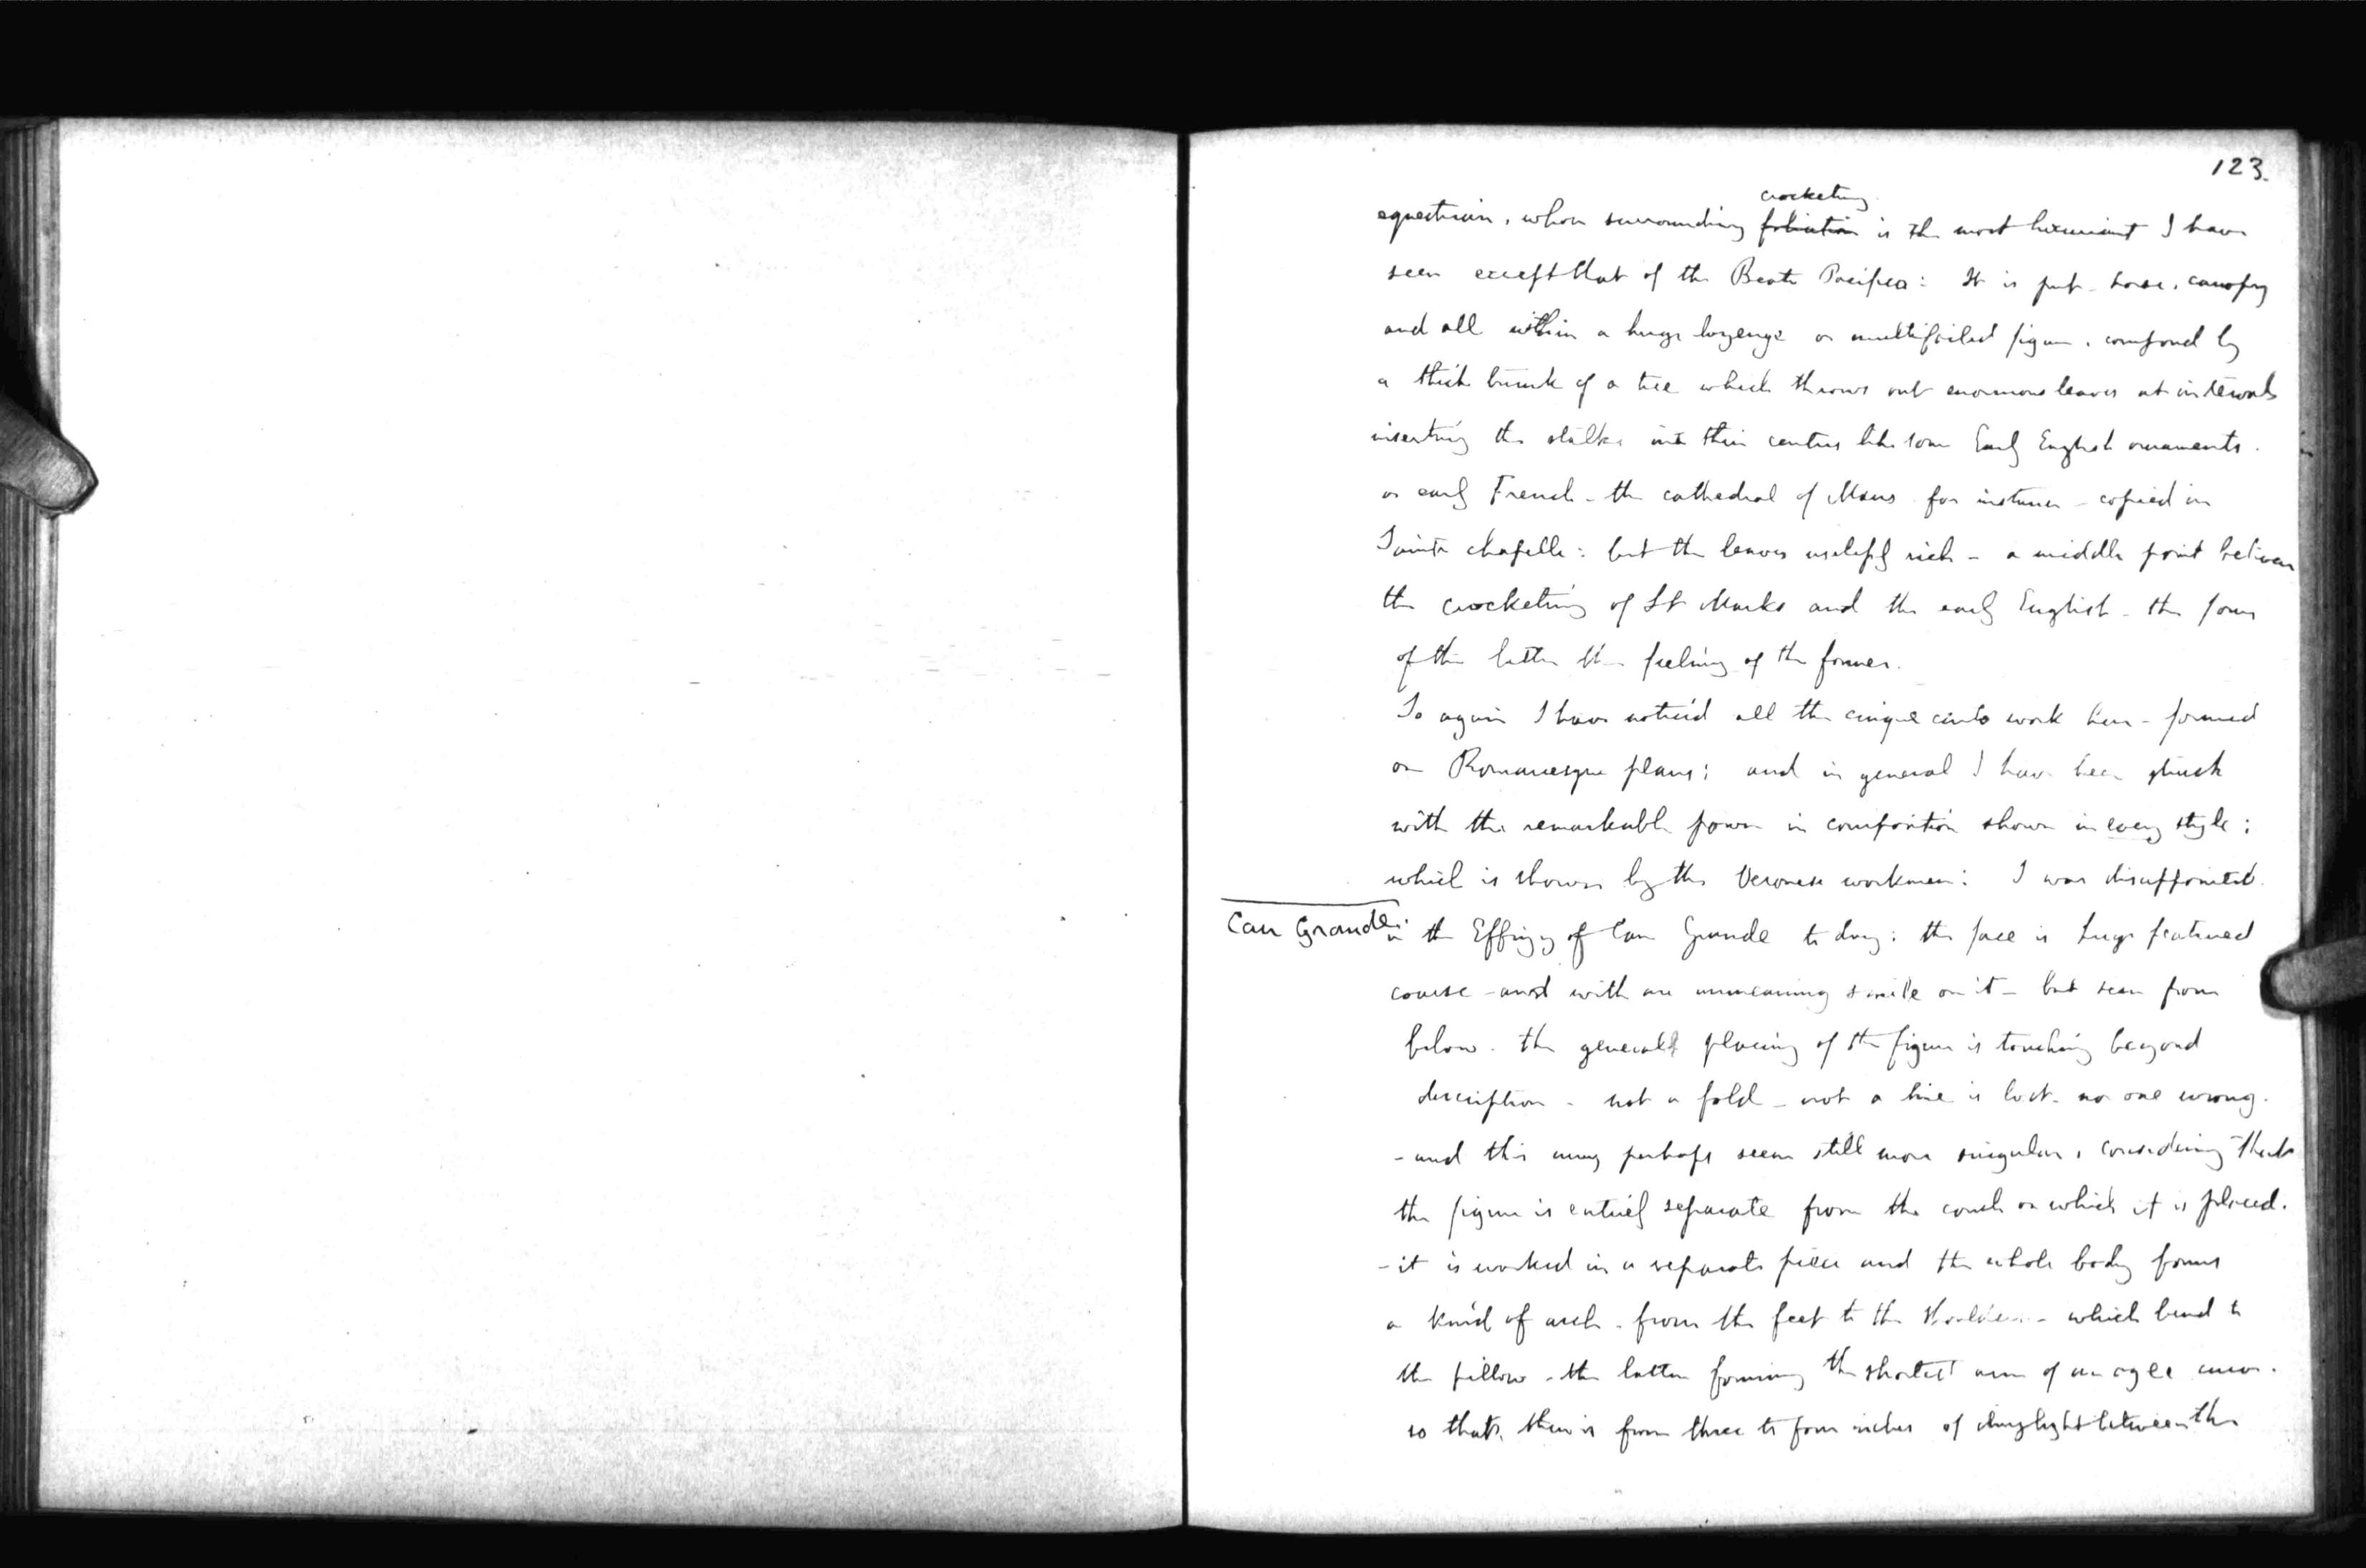 123.
crocketing
equestrian, whose surrounding foliation is the most luxuriant I have
seen except that of the Beato Pacifico: It is put - horse, canopy
and all within a huge lozenge or multifoiled figure, composed by
a thick trunk of a tree which throws out enormous leaves at intervals
inserting the stalks into their centres like some Early English ornaments.
or early French - the cathedral of Mans for instance - copied in
Sainte chapelle: but the leaves rich - a middle point between
the crocketing of St Marks and the early English - the form
of the latter the feeling of the former.
So again I have noticed all the cinque cento work here - formed
on Romanesque plans; and in general I have been struck
with the remarkable power in composition shown in every style;
which is shown by the Veronese workmen: I was disappointed
Can Grande.
in the Effigy of Can Grande to day: the face is huge featured
coarse - and with an unmeaning smile on it - but seen from
below. the general placing of the figure is touching beyond
description - not a fold - not a line is lost - no one wrong.
- and this may perhaps seem still more singular, considering that
the figure is entirely separate from the couch on which it is placed.
- it is worked in a separate piece and the whole body forms
a kind of arch - from the feet to the shoulders - which bend to
the pillow - the latter forming the shortest arm of an ogee curve.
so that, there is from three to four inches of daylight between the